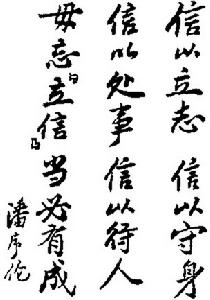 信以立志 信以守身
信以处事 信以待人
毋忘立信 当必有成
潘序伦